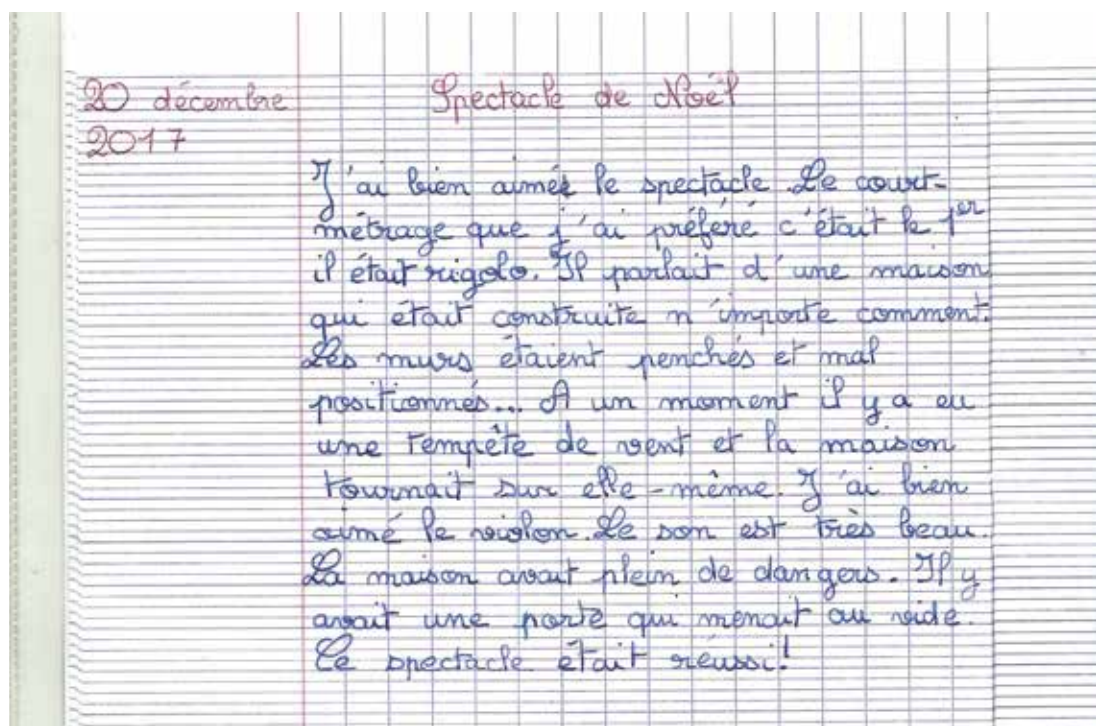 20 décembre
2017
Spectacle de Noël
J'ai bien aimé le spectacle. Le court-
métrage que j'ai préféré c'était le 1er
il était rigolo. Il parlait d'une maison
qui était construite n'importe comment.
Les murs étaient penchés et mal
positionnés... A un moment il y a eu
une tempête de vent et la maison
tournait sur elle-même. J'ai bien
aimé le violon. Le son est très beau.
La maison avait plein de dangers. Il y
avait une porte qui menait au vide.
Ce spectacle était réussi!